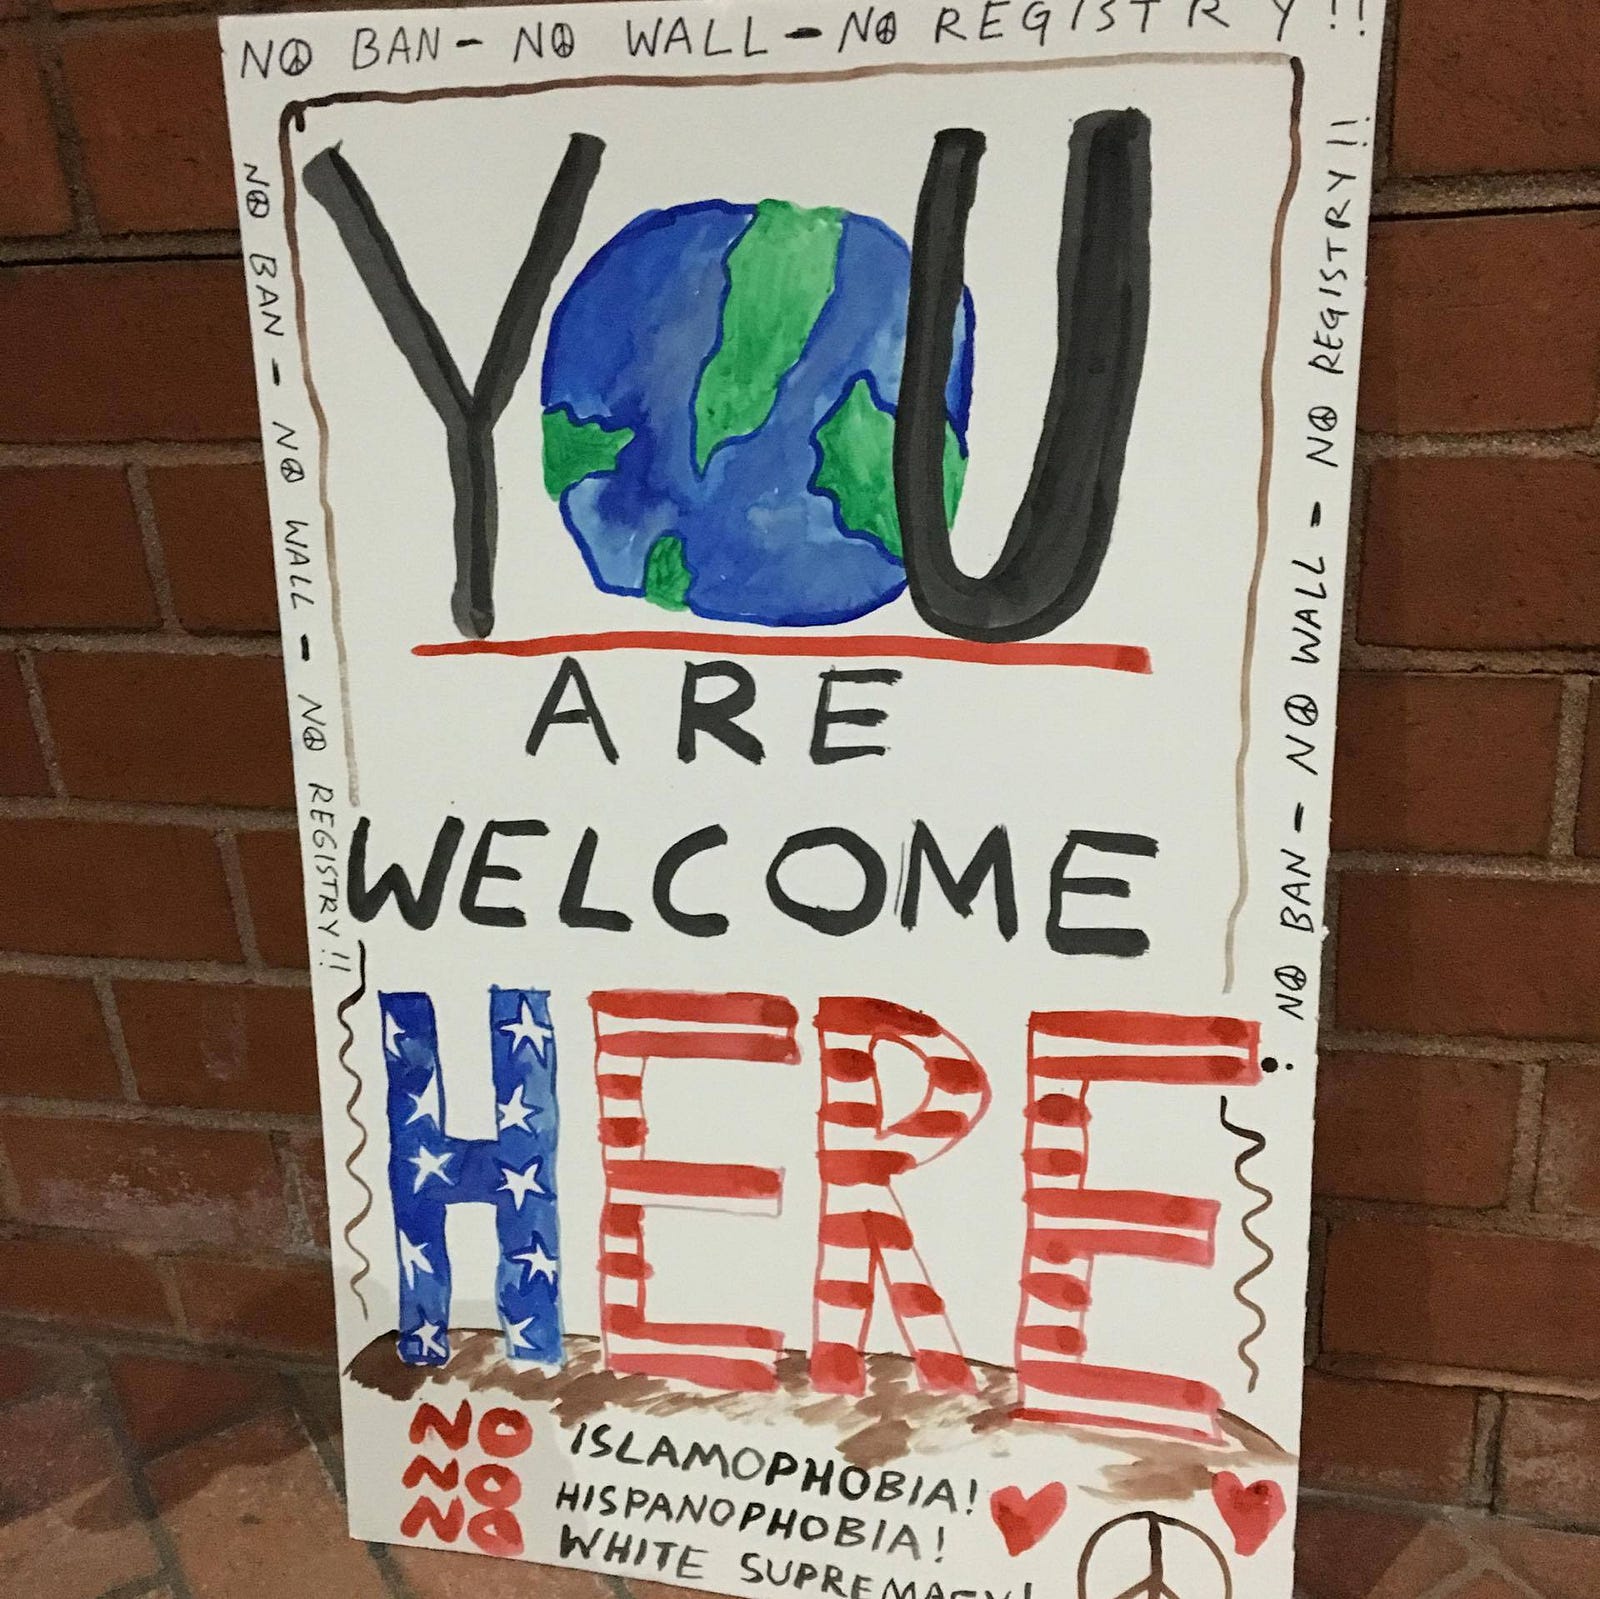 NO BAN - NO WALL - NO REGISTRY!!
NO BAN - NO WALL - NO REGISTRY!!
NO BAN - NO WALL - NO REGISTRY!!
YOU
ARE
WELCOME
HERE
NO ISLAMOPHOBIA!
NO HISPANOPHOBIA!
NO WHITE SUPREMACY!